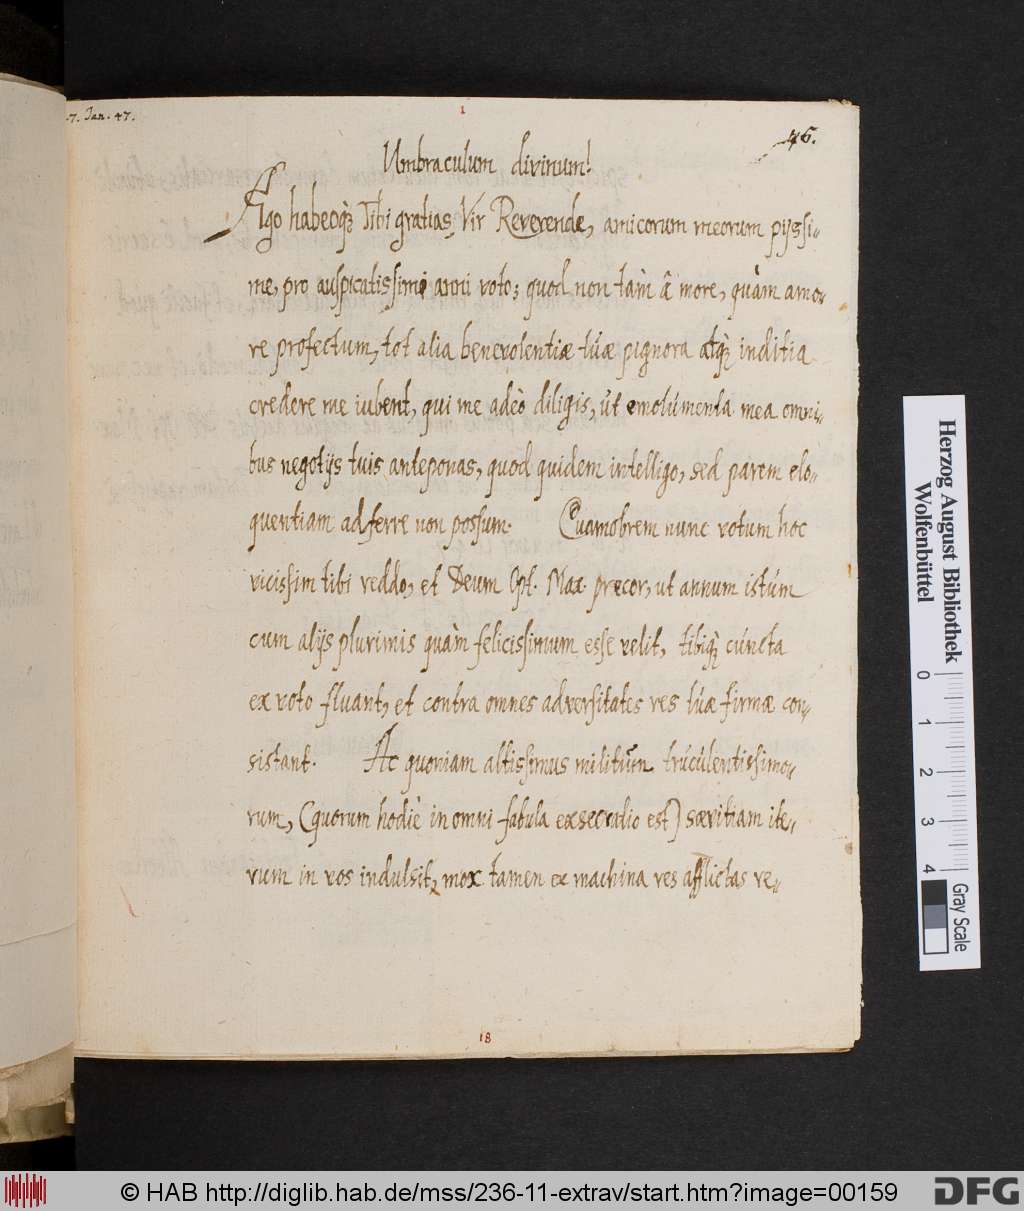 7. Jan. 47.
1
46.
Umbraculum divinum!
Ago habeoq₃ Tibi gratias, Vir Reverende, amicorum meorum pijssi-
me, pro auspicatissimi anni voto; quod non tàm â more, quàm amo-
re profectum, tot alia benevolentiæ túæ pignora atq₃ inditia
credere me iubent, qui me adeò diligis, út emolúmenta mea omni-
bus negotijs tuis anteponas, quod quidem intelligo, sed parem elo-
quentiam adferre non possum. Cuamobrem nunc votum hoc
vicissim tibi reddo, et Deum Opt. Max. precor, ut annum istúm
cum alijs plurimis quàm felicissimum esse velit, tibiq₃ cúncta
ex voto fluant, et contra omnes adversitates res túæ firmæ con-
sistant. Ac quoniam altissimus militum trúcúlentissimo-
rum, (quorum hodiè in omni fabula exsecratio est) sævitiam ite-
rum in vos indulsit, mox tamen ex machina res afflictas re-
18
Herzog August Bibliothek
Wolfenbüttel
0 1 2 3 4
Gray Scale
© HAB http://diglib.hab.de/mss/236-11-extrav/start.htm?image=00159
DFG